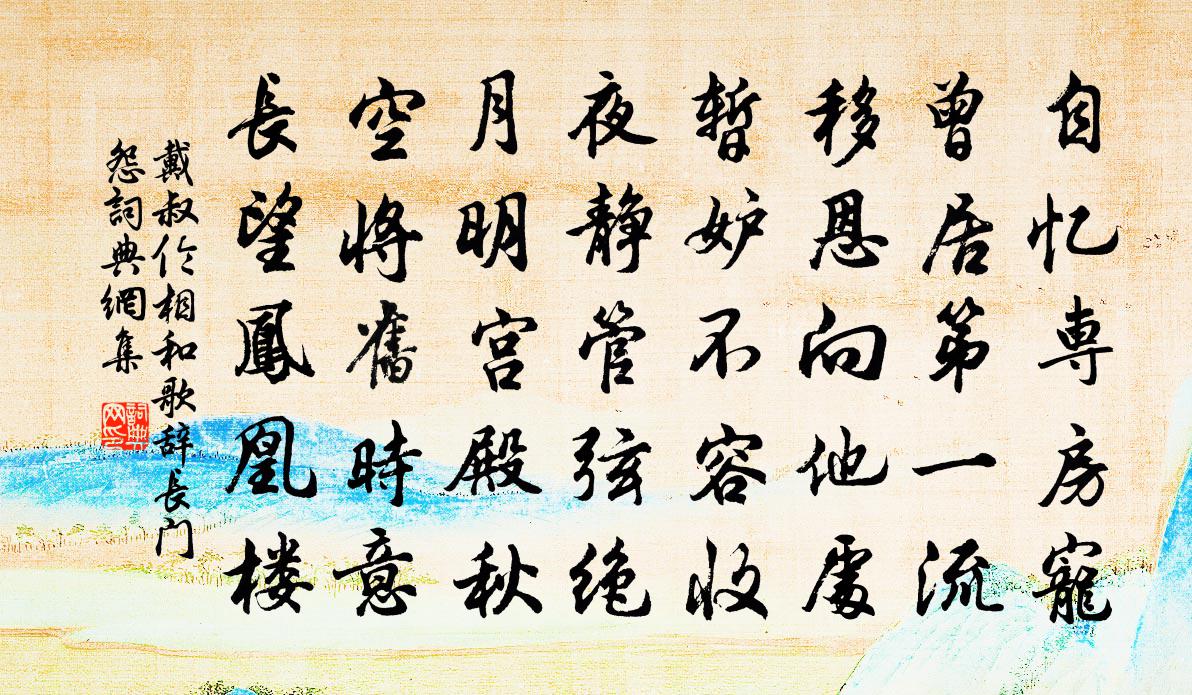 自忆専房寵
曾居第一流
移恩向他處
暫妒不容收
夜静管弦绝
月明宫殿秋
空将舊時意
長望鳳凰楼
戴叔伦相和歌辞長门
怨詞典網集